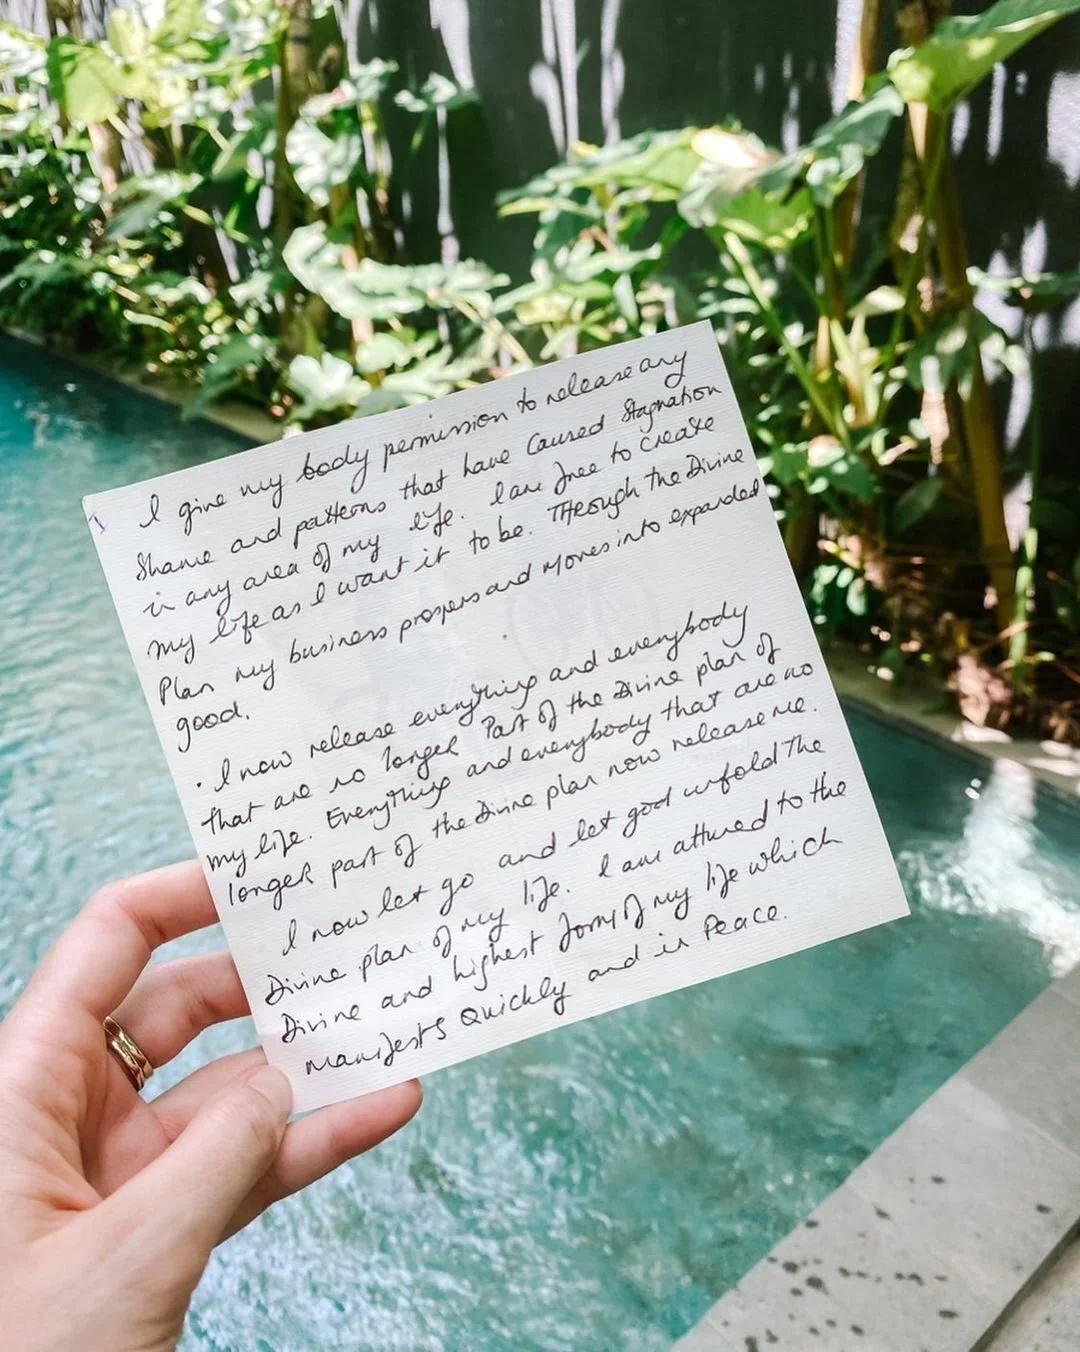 I give my body permission to release any
Shame and patterns that have Caused Stagnation
in any area of my life. I am free to Create
my life as I want it to be. Through the Divine
Plan my business prospers and Moves into expanded
good.
· I now release everything and everybody
that are no longer Part of the Divine plan of
my life. Everything and everybody that are no
longer part of the Divine plan now release me.
I now let go and let good unfold The
Divine plan of my life. I am attuned to the
Divine and highest form of my life which
manifests Quickly and in Peace.